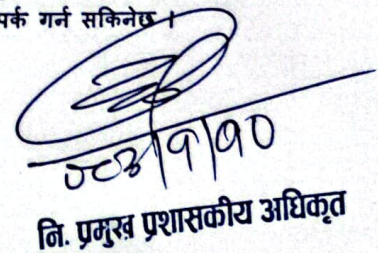 पर्क गर्न सकिनेछ ।
०८३/१/१०
नि. प्रमुख प्रशासकीय अधिकृत